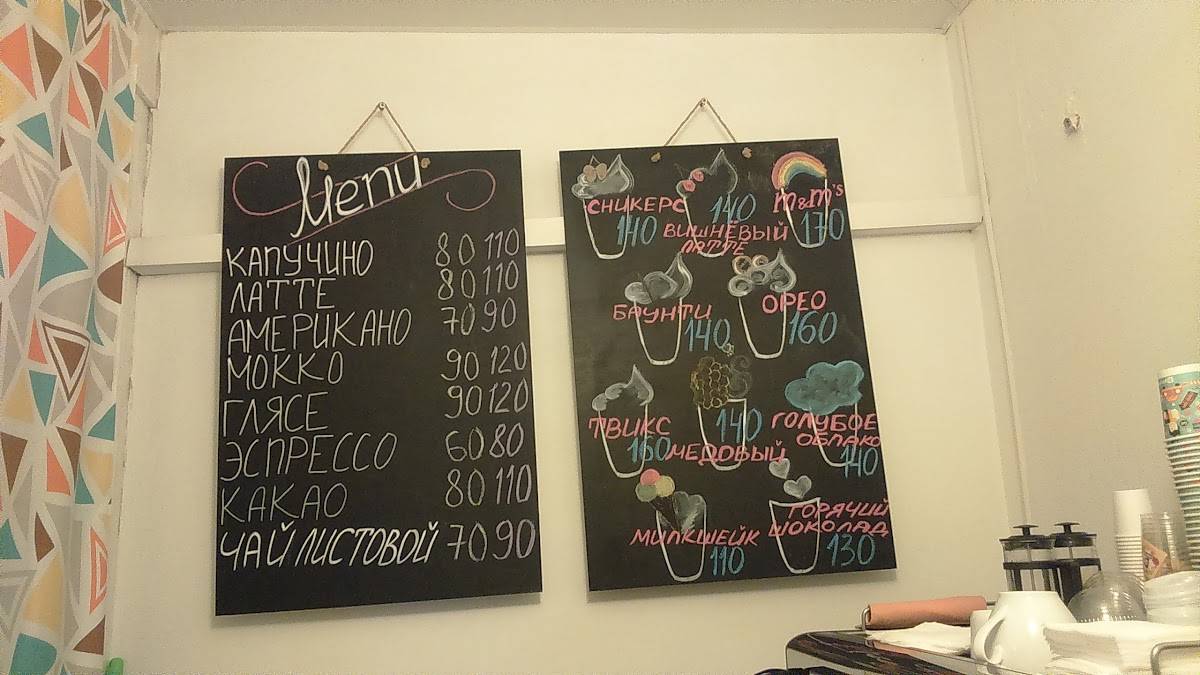 Menu
КАПУЧИНО 80 110
ЛАТТЕ 80 110
АМЕРИКАНО 70 90
МОККО 90 120
ГЛЯСЕ 90 120
ЭСПРЕССО 60 80
КАКАО 80 110
ЧАЙ ЛИСТОВОЙ 70 90
СНИКЕРС
140
140
ВИШНЁВЫЙ
ЛАТТЕ
m&m's
170
БАУНТИ
140
ОРЕО
160
ТВИКС
160
140
МЕДОВЫЙ
ГОЛУБОЕ
ОБЛАКО
140
МИЛКШЕЙК
110
ГОРЯЧИЙ
ШОКОЛАД
130